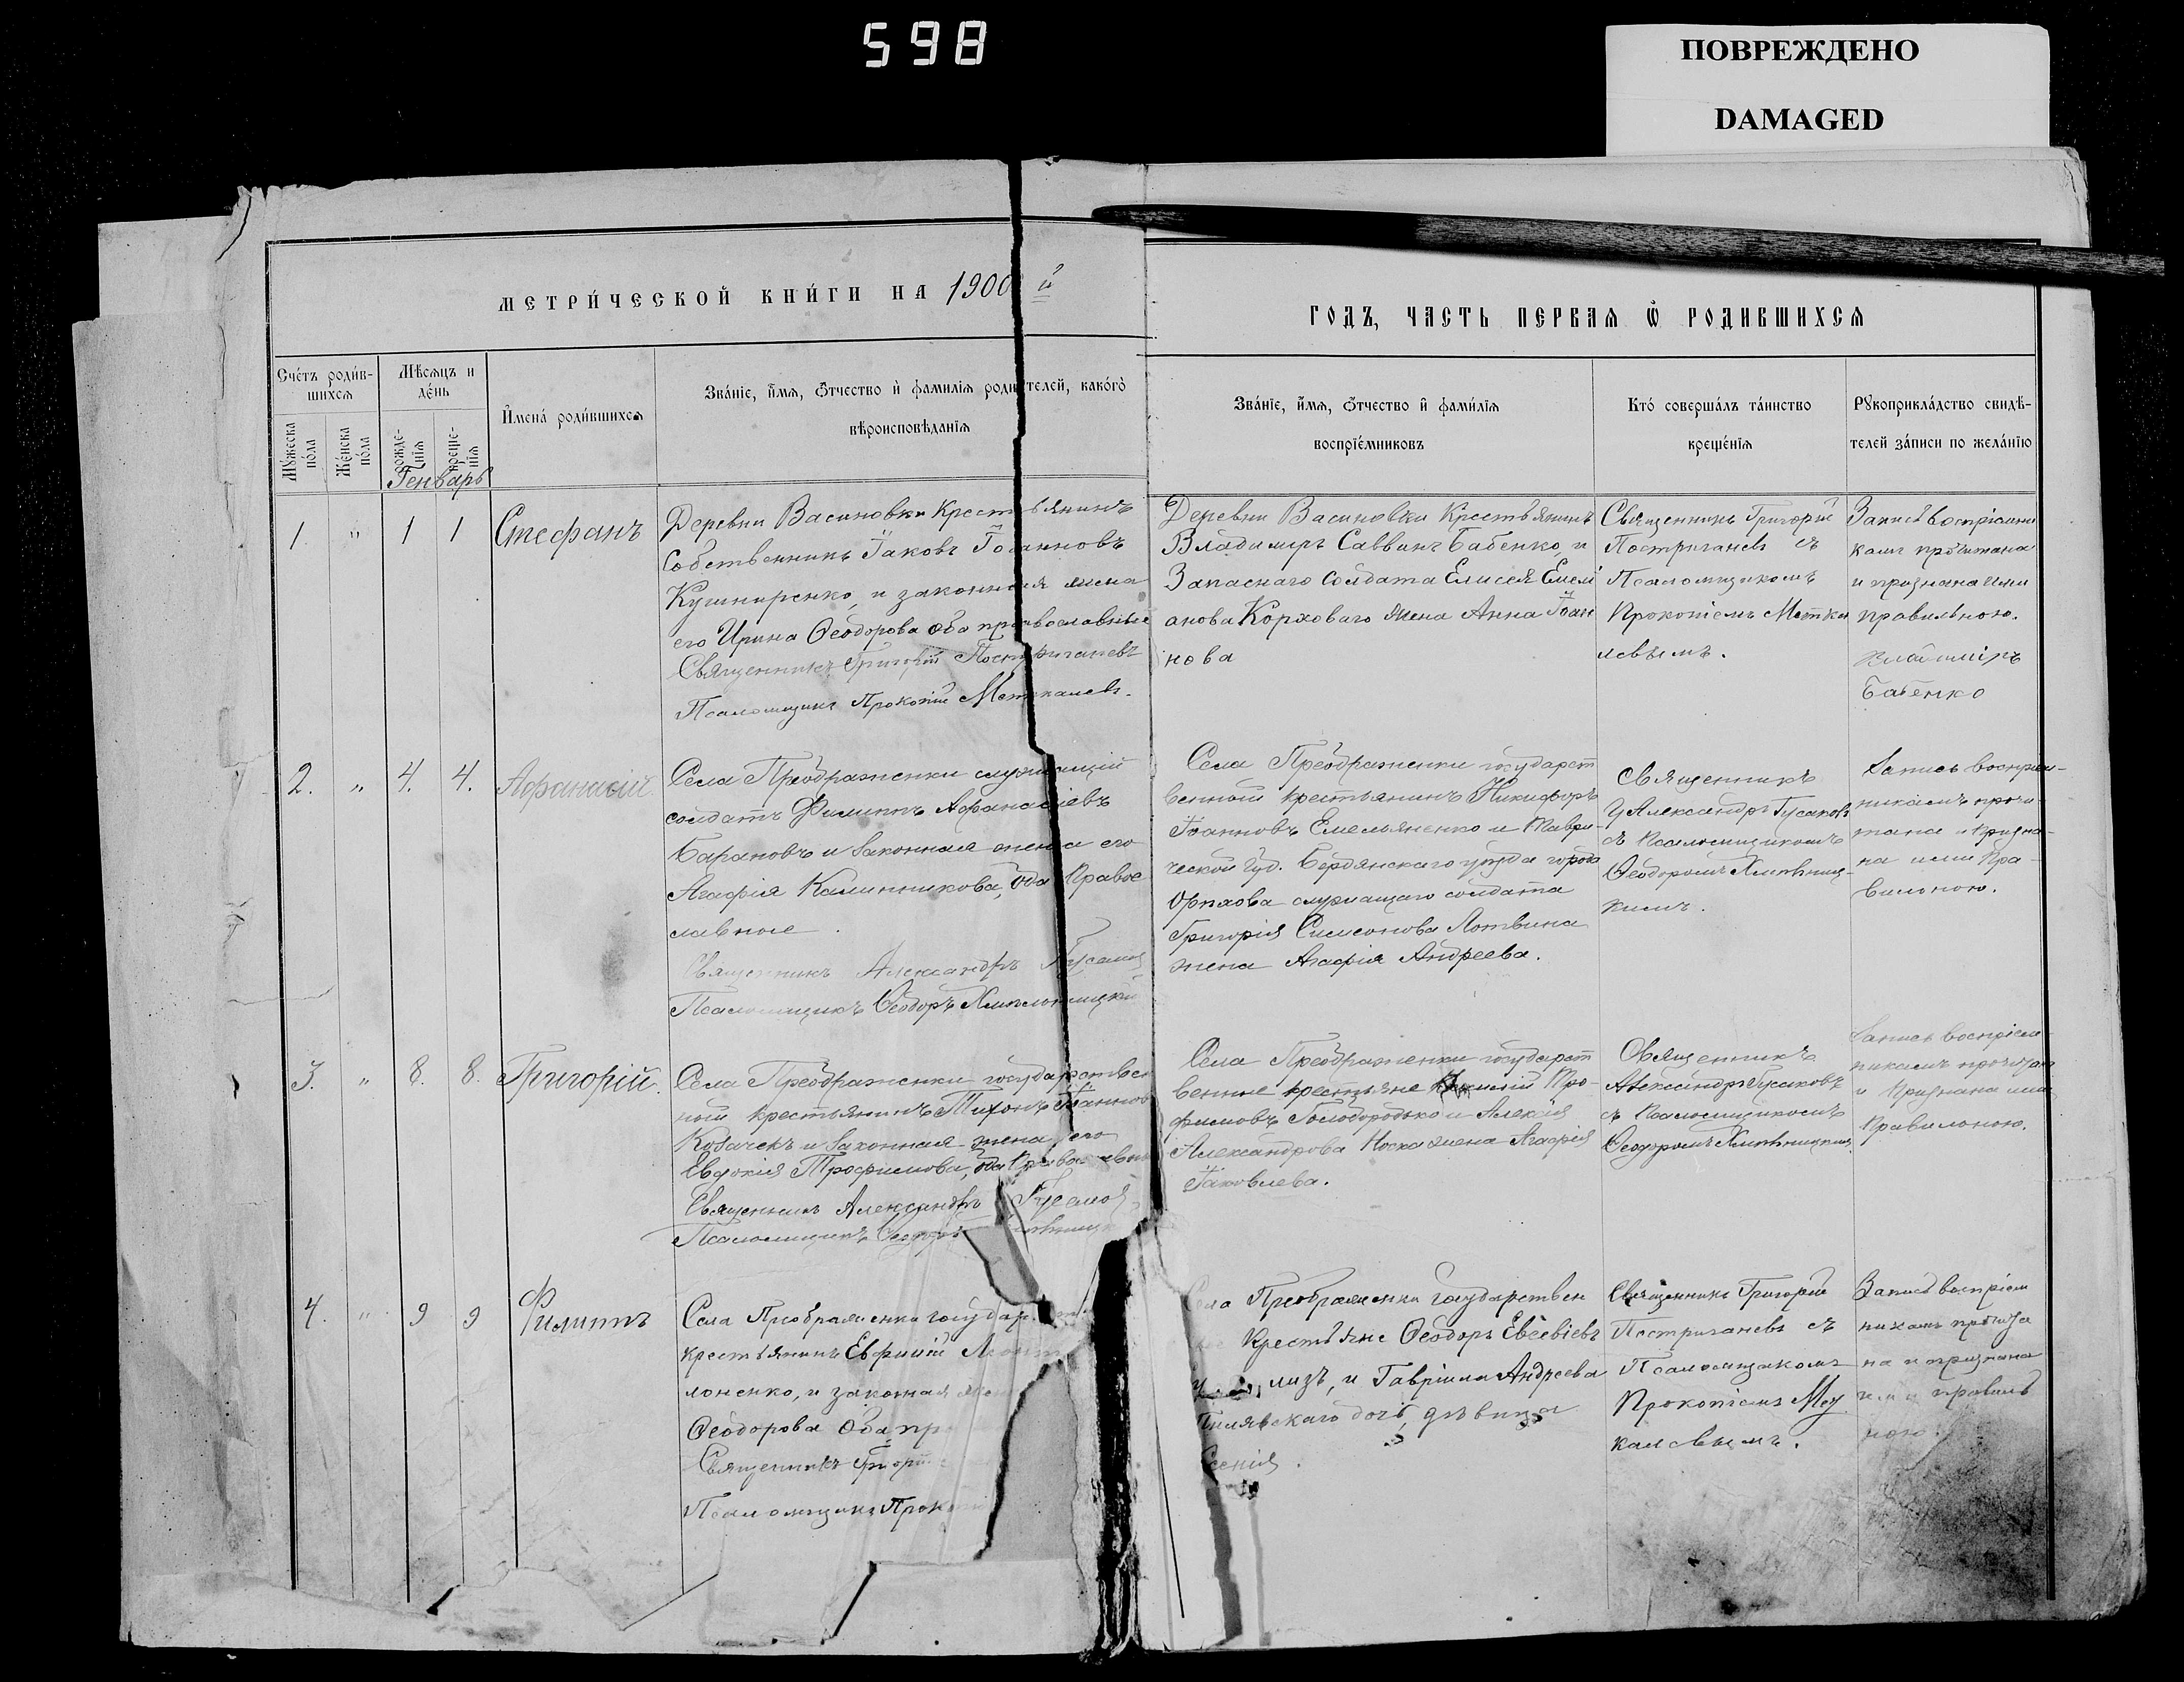 598
ПОВРЕЖДЕНО
DAMAGED
МЕТРИ́ЧЕСКОЙ КНИ́ГИ НА 1900 й
ГОДЪ, ЧАСТЬ ПЕРВАЯ Ѡ РОДИВШИХСЯ
Сче́тъ роди́в-
шихсѧ
Мꙋ́жеска
по́ла
Же́нска
по́ла
Мѣ́сѧцъ и
де́нь
рожде-
нїѧ
креще-
нїѧ
Генварь
И҆мена́ роди́вшихсѧ
Зва́нїе, и҆́мѧ, ѻ҆́тчество и҆ фами́лїѧ родителей, како́гѡ
вѣроисповѣ́данїѧ
Зва́нїе, и҆́мѧ, ѻ҆́тчество и҆ фами́лїѧ
воспрїе́мниковъ
Кто́ соверша́лъ та́инство
креще́нїѧ
Рꙋкоприкла́дство свидѣ́-
телей за́писи по жела́нїю
1. " 1 1 Стефанъ
Деревни Васиновки Крестьянинъ
Собственникъ Іаковъ Іоанновъ
Кушниренко, и законная жена
его Ирина Ѳеодорова оба православные
Священникъ Григорій Постригачевъ
Псаломщикъ Прокопій Меткалевъ.
Деревни Васиновки Крестьянинъ
Владимиръ Саввинъ Бабенко, и
Запаснаго Солдата Елисея Емелі
анова Корховаго жена Анна Іоан
нова
Священникъ Григорій
Постригачевъ съ
Псаломщикомъ
Прокопіемъ Метка
левымъ.
Запись воспріемни
камъ прочитана
и признана ими
правильною.
Владиміръ
Бабенко
2. " 4. 4. Афанасій
Села Преображенки служащій
солдатъ Филиппъ Афанасіевъ
Барановъ и законная жена его
Агафія Калинникова, оба Правос
лавные.
Священникъ Александръ Гусаковъ
Псаломщикъ Ѳеодоръ
Села Преображенки государст
венный крестьянинъ Никифоръ
Іоанновъ Емельяненко и Таври-
ческой губ. Бердянскаго уѣзда города
Орѣхова служащаго солдата
Григорія Симеонова Литвина
жена Агафія Андреева.
Священникъ
Александръ Гусаковъ
съ Псаломщикомъ
Ѳеодоромъ Хмѣльниц-
кимъ.
Запись воспріем-
никамъ прочи-
тана и призна-
на ими Пра-
вильною.
3. " 8. 8. Григорій.
Села Преображенки государствен
ный крестьянинъ Тихонъ Іоанновъ
Козачекъ и законная жена его
Евдокія Трофимова, оба Православные
Священникъ Александръ Гусаковъ
Псаломщикъ Ѳеодоръ
Села Преображенки государст
венные крестьяне Про-
фимовъ Голобородько и Алексія
Александрова Носка жена Агафія
Іаковлева.
Священникъ
Александръ Гусаковъ
съ Псаломщикомъ
Ѳеодоромъ Хмѣльницкимъ
Запись воспріем
никамъ прочитана
и Признана ими
Правильною.
4. " 9 9 Филиппъ
Села Преображенки государ
крестьянинъ Евфимій
лоненко, и законная жен
Ѳеодорова оба пра
Священникъ Григорій
Псаломщикъ Проко
Села Преображенки государствен
ные Крестьяне Ѳеодоръ Евсевіевъ
лизъ, и Гавріила Андреева
Билявскаго дочь, дѣвица
Ксенія.
Священникъ Григорій
Постригачевъ съ
Псаломщикомъ
Прокопіемъ Мет
калевымъ.
Запись воспріем
никамъ прочита
на и признана
ими правиль
ною.